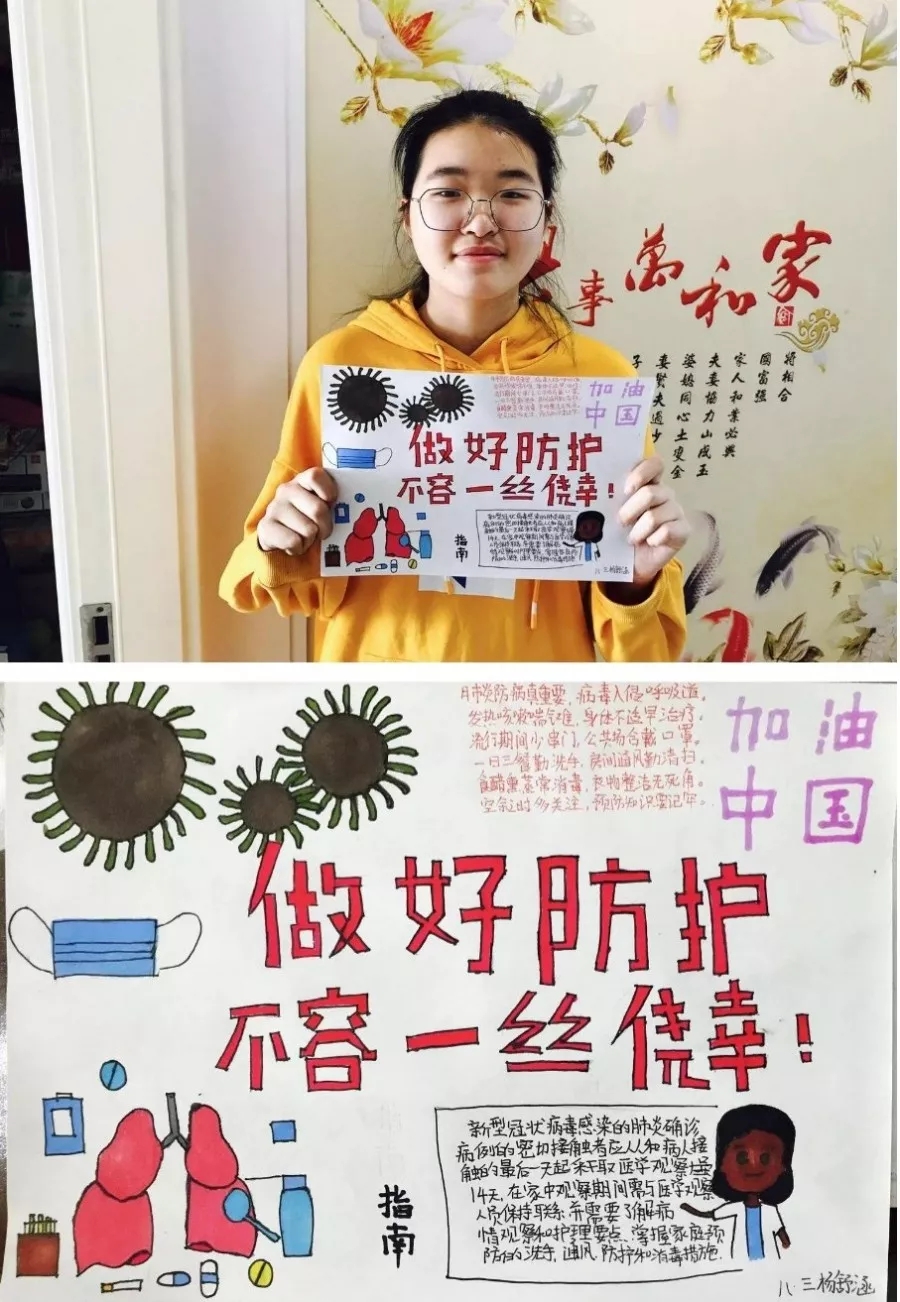 家和萬事
將相合
國富强
家人和業必興
夫妻協力山成玉
婆媳同心土变金
妻賢夫過少
子
加油
中国
做好防护
不容一丝侥幸!
指南
新型冠状病毒感染的肺炎确诊
八.三杨舒涵
日常预防病真重要，病毒入侵呼吸道。
发热咳嗽喘气难，身体不适早治疗。
流行期间少串门，公共场合戴口罩。
一日三餐勤洗手，房间通风勤清扫。
白醋熏蒸常消毒，衣物整洁无死角。
空余时多关注，预防知识要记牢。
加油
中国
做好防护
不容一丝侥幸!
指南
新型冠状病毒感染的肺炎确诊
病例的密切接触者应从和病人接
触的最后一天起采取医学观察
14天.在家中观察期间需与医学观察
人员保持联系.并需要了解病
情观察和护理要点.掌握家庭预
防的洗手.通风.防护和消毒措施.
八.三杨舒涵